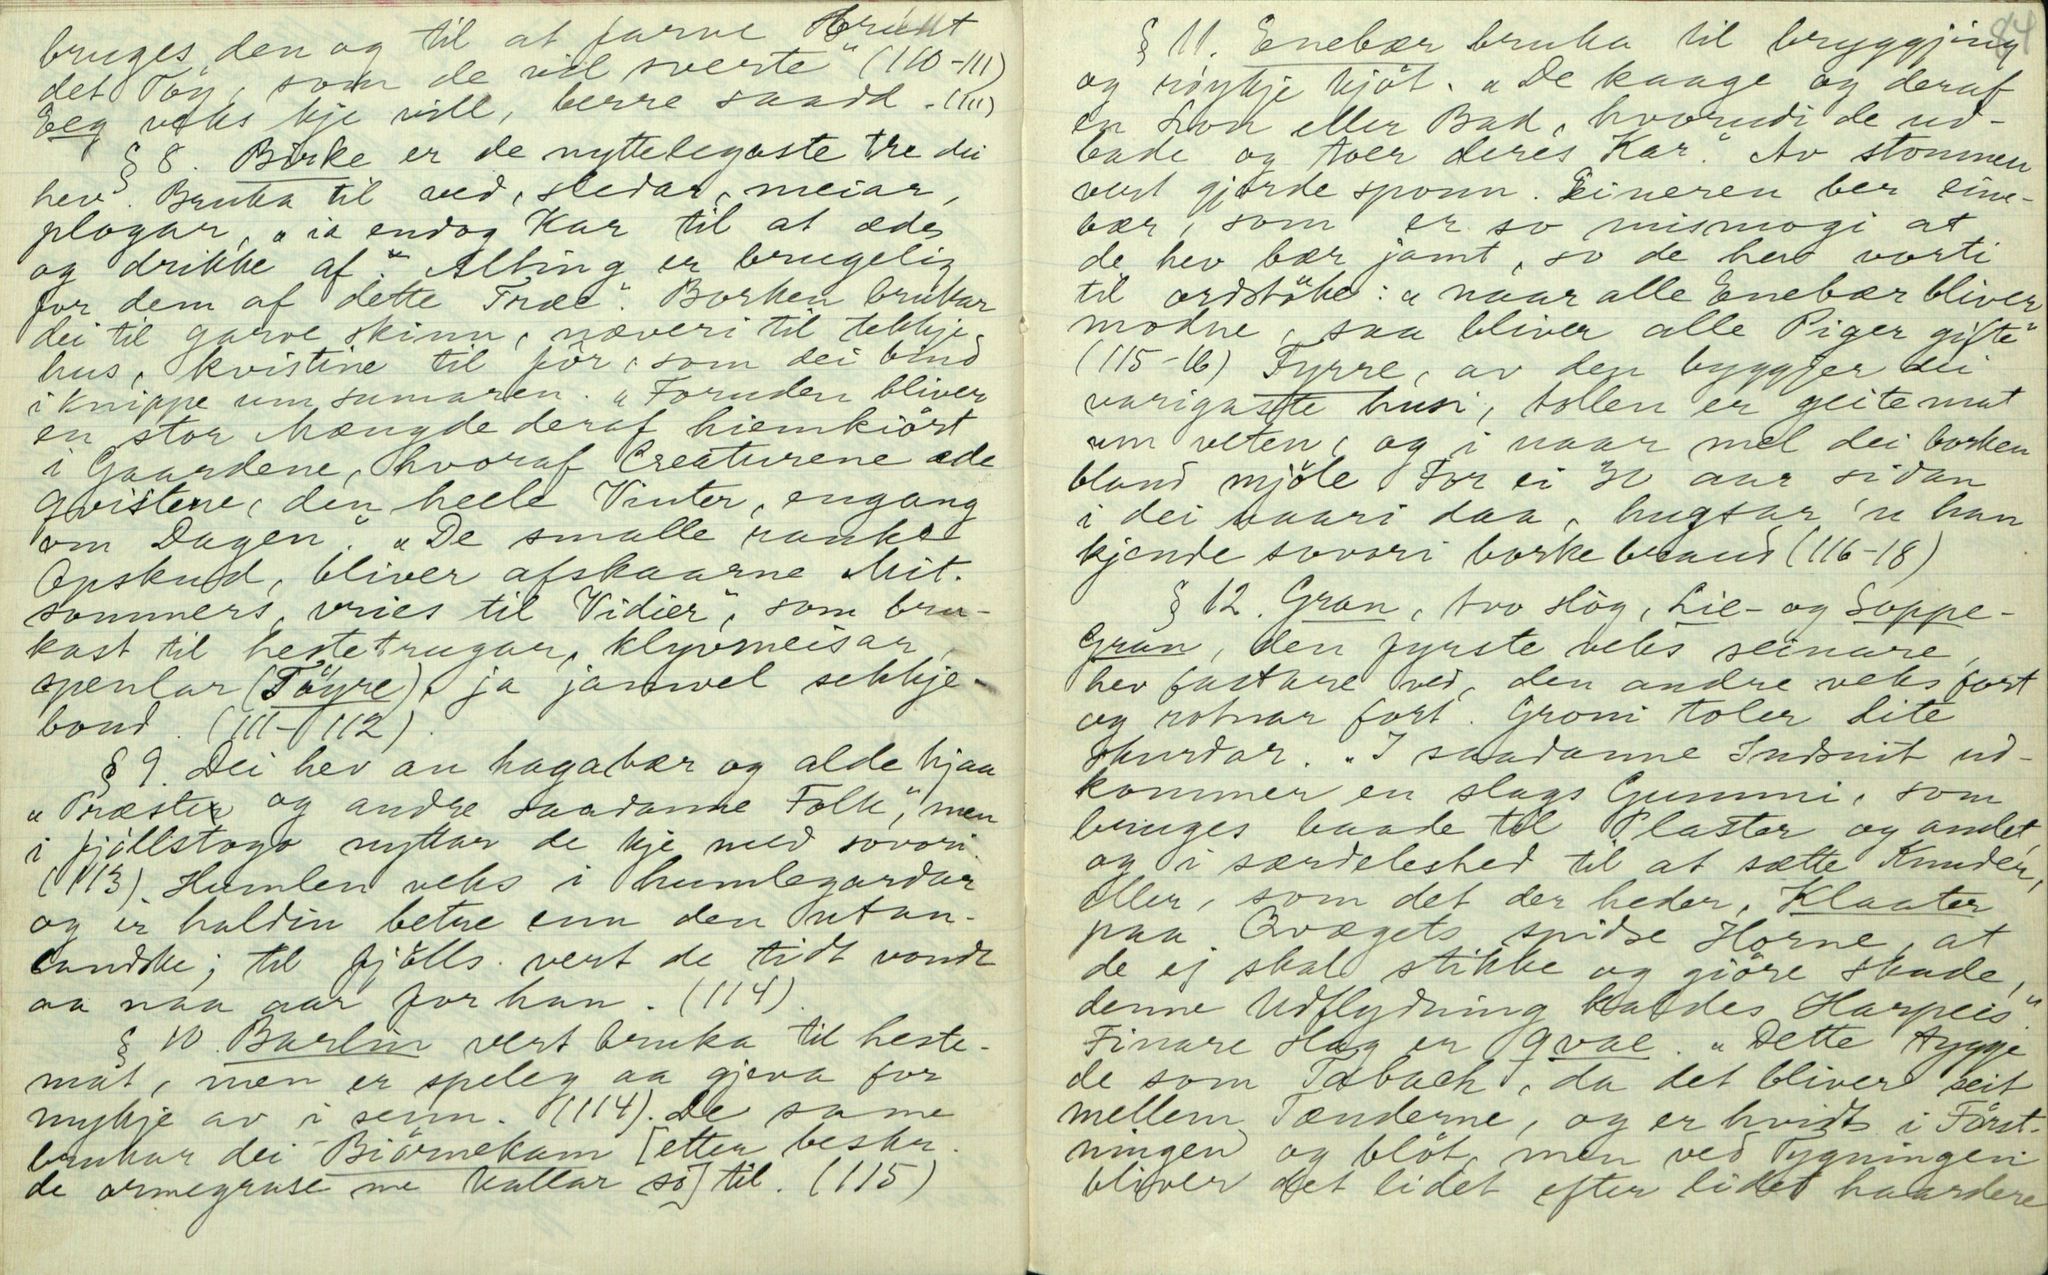 bruges den og til at farve Brunt
det Töy, som de vil sverte" (110-111)
Eeg veks kje vill, berre saadd. (111)
§ 8. Birke er de nyttelegaste tre dei
hev. Bruka til ved, sledar, meiar,
plogar, "ia endog Kar til at æde
og drikke af." "Alting er brugelig
for dem af dette Træe". Borken brukar
dei til garve skinn, næveri til tekkje
hus, kvistine til för, som dei bind
i knippe um sumaren. "Foruden bliver
en stor Mængde deraf hiemkiört
i Gaardene, hvoraf Creaturene æde
Qvistene, den heele Vinter, engang
om Dagen". "De smalle ranke
Opskud, bliver afskaarne Mit-
sommers, vries til Vidier", som bru-
kast til hestetrugar, klyvmeisar,
spenlar (Töyre), ja jamvel sekkje-
bond. (111-112).
§ 9. Dei hev an hagabær og alde hjaa
"Præster og andre saadanne Folk", men
i fjöllstogo nyttar de kje med sovori
(113) Humlen veks i humlegardar
og er haldin betre enn den utan-
landske; til fjölls vert de tidt vondt
aa naa aar for han. (114).
§ 10. Barlin vert bruka til heste-
mat, men er speleg aa gjeva for
mykje av i senn. (114). De same
brukar dei Biörnekam [etter beskr.
de ormegrase me kallar so] til. (115)
84
§ 11. Enebær bruka til bryggjing
og röykje kjöt. "De kaage og deraf
en Lou eller Bad, hvorudi de ud-
bade og toer deres Kar." Av stommen
vert gjorde sponn. Eineren ber eine-
bær, som er so mismogi at
de hev bær jamt, so de hev vorti
til ordstöke: "naar alle Enebær bliver
modne, saa bliver alle Piger gifte"
(115-16) Fyrre, av den byggjer dei
varigaste husi, tollen er geitemat
um veten, og i naar mel dei borken
bland mjöle For ei 30 aar sidan
i dei vaari daa, hugsar 'n han
kjende sovori borkebraud (116-18)
§ 12. Gran, tvo slög, Lie- og Soppe-
Gran, den fyrste veks seinare,
hev fastare ved, den andre veks fort
og rotnar fort. Groni toler lite
skurdar. "I saadanne Indsnit ud-
kommer en slags Gummi, som
bruges baade til Plaster og andet,
og i særdeleshed til at sætte Knuder,
eller, som det der heder, Klaater
paa Qvægets spidse Horne, at
de ej skal stikke og giöre skade,
denne Udflydning kaldes Harpeis."
Finare slag er Qvae. "Dette tygge
de som Taback, da det bliver seit
mellem Tænderne, og er hvidt i Först-
ningen og blöt, men ved Tygningen
bliver det lidet efter lidet haardere